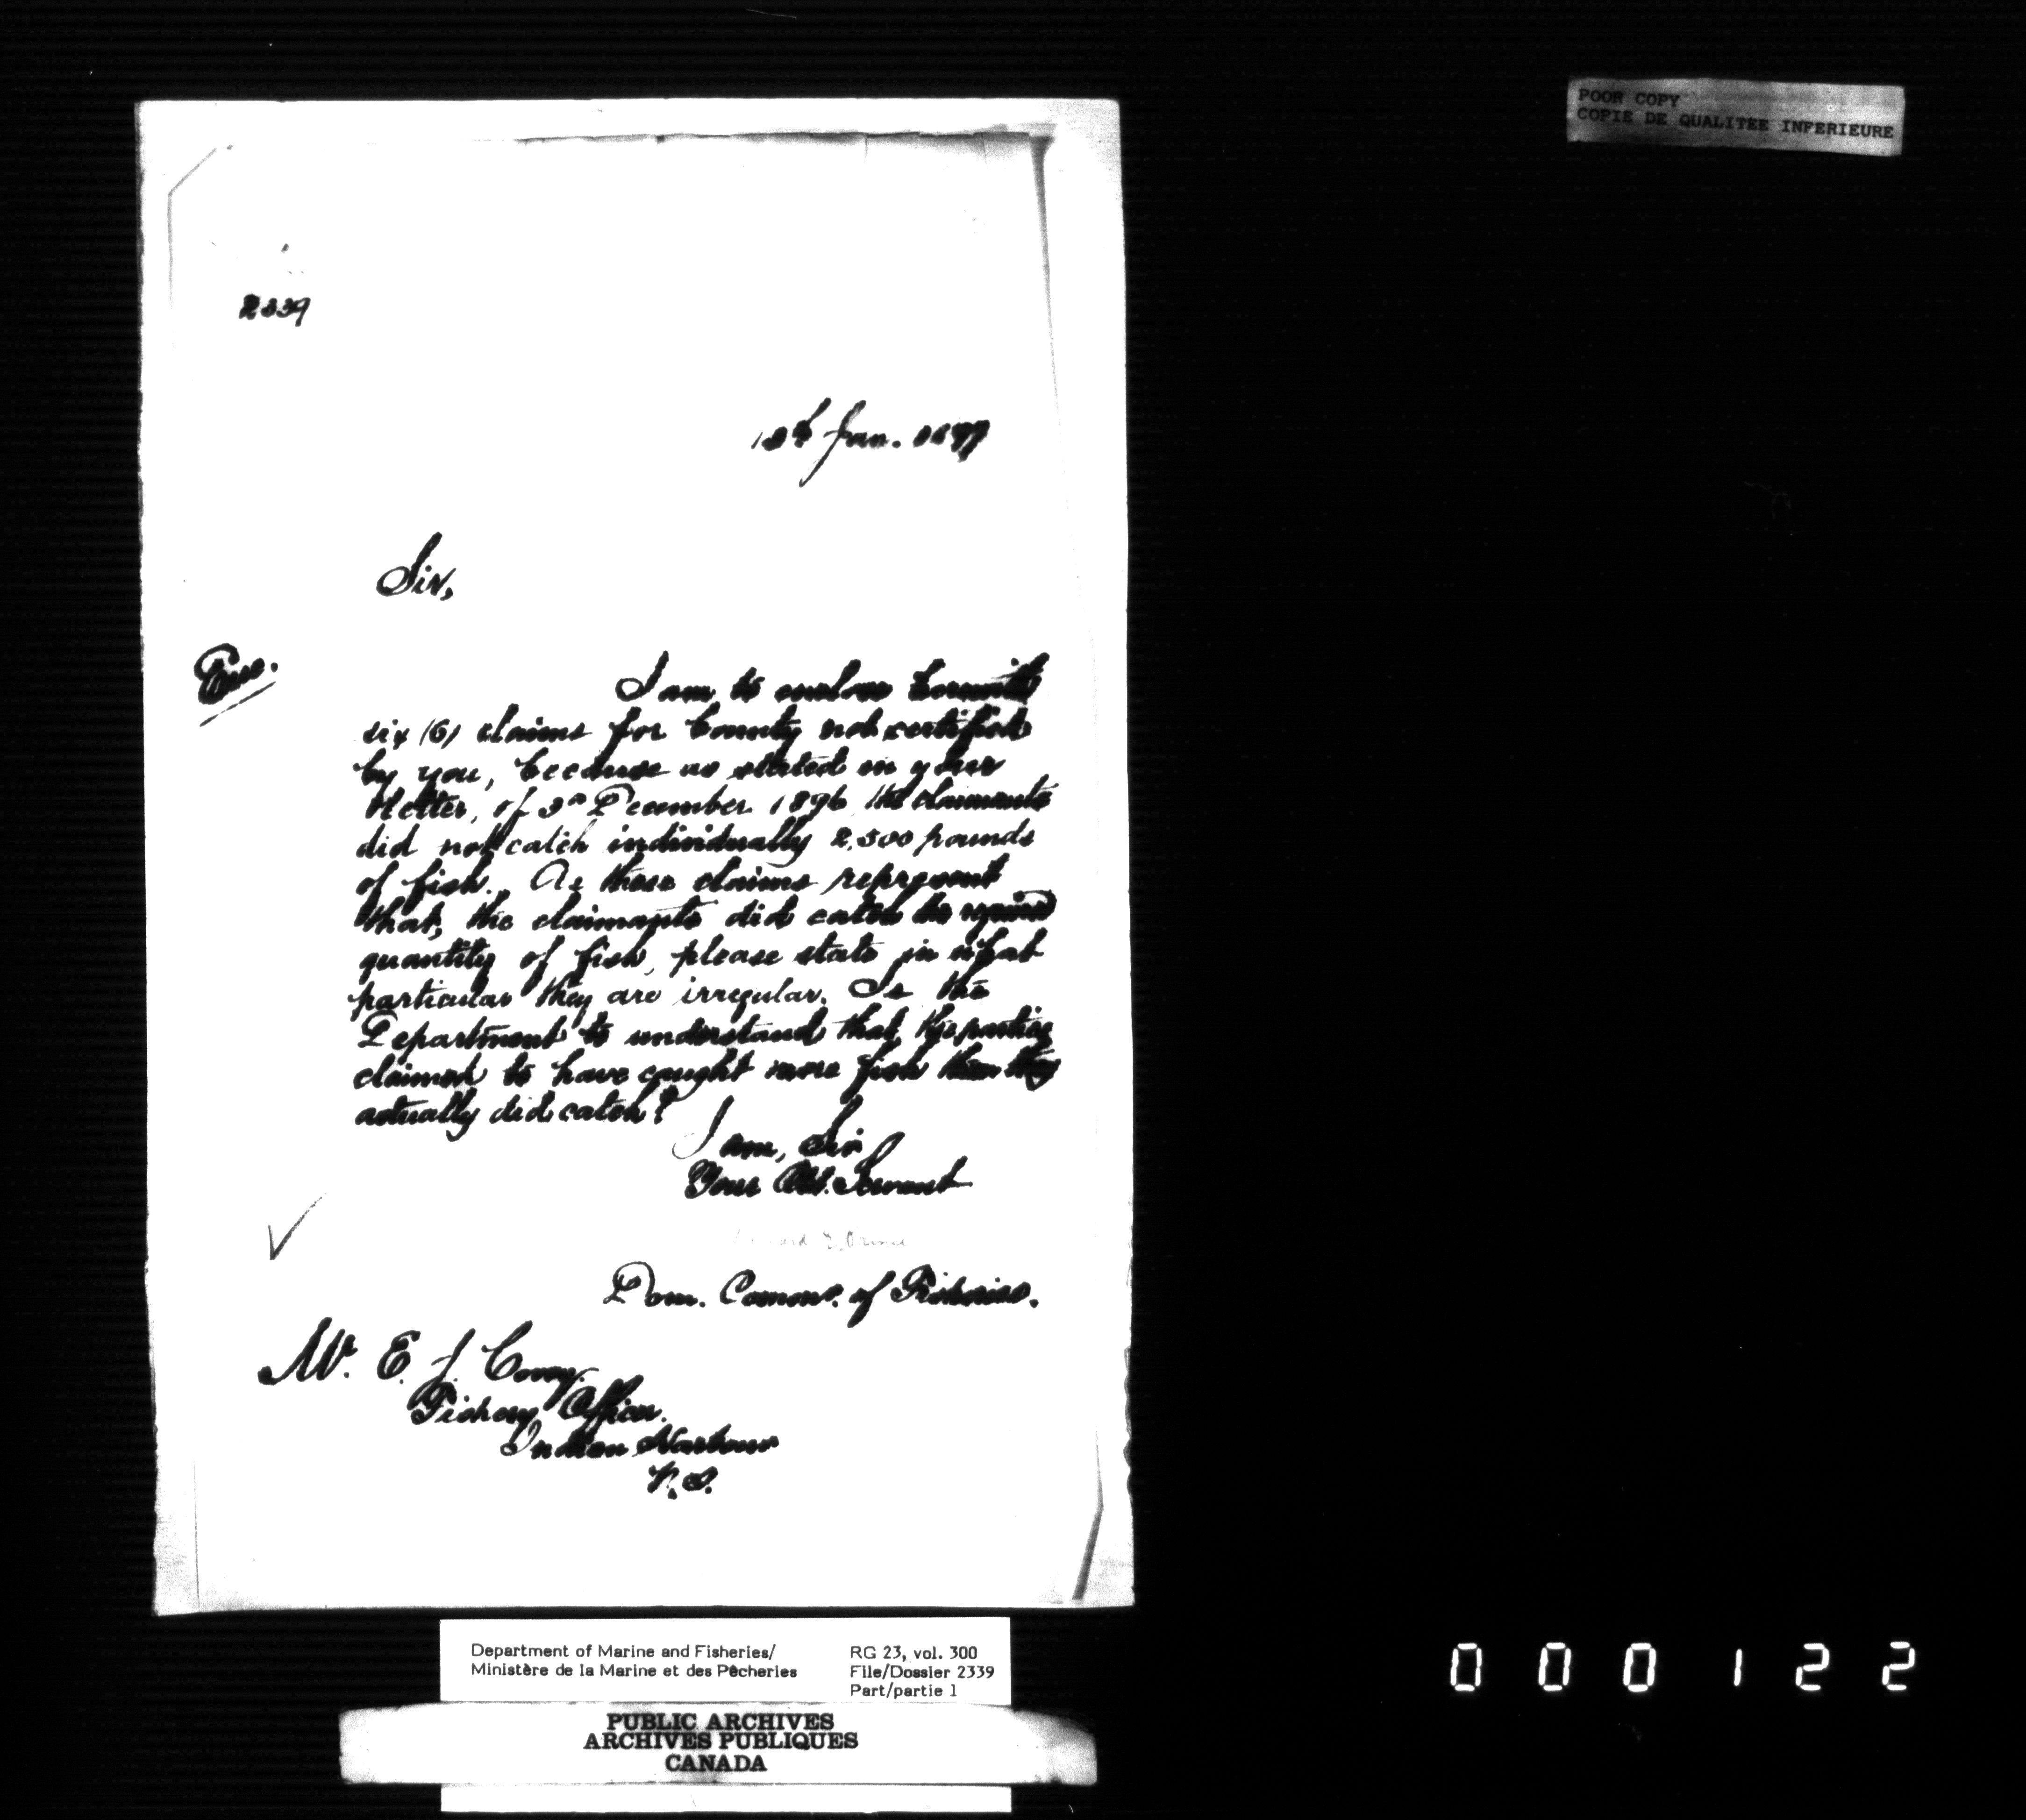 POOR COPY
COPIE DE QUALITÉE INFERIEURE
2339
18th Jan. 1897
Sir,
Enc.
I am to enclose herewith
six (6) claims for bounty not certified
by you, because as stated in your
letter, of 3rd December 1896 the claimants
did not catch individually 2,500 pounds
of fish. As these claims represent
that, the claimants did catch the required
quantity of fish, please state in what
particular they are irregular. Is the
Department to understand that the parties
claimed to have caught more fish than they
actually did catch?
I am, Sir
Your Obt. Servant
E. Prince
Dom. Commr. of Fisheries.
Mr. E. J.
Fishery Officer.
Indian Harbour
N.S.
Department of Marine and Fisheries/
Ministère de la Marine et des Pêcheries
RG 23, vol. 300
File/Dossier 2339
Part/partie 1
PUBLIC ARCHIVES
ARCHIVES PUBLIQUES
CANADA
000122